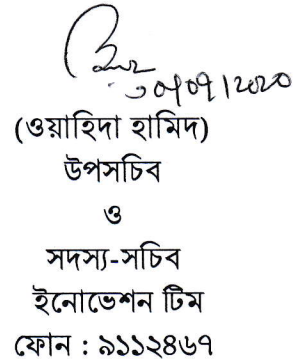 (ওয়াহিদা হামিদ)
উপসচিব
ও
সদস্য-সচিব
ইনোভেশন টিম
ফোন : ৯১১২৪৬৭